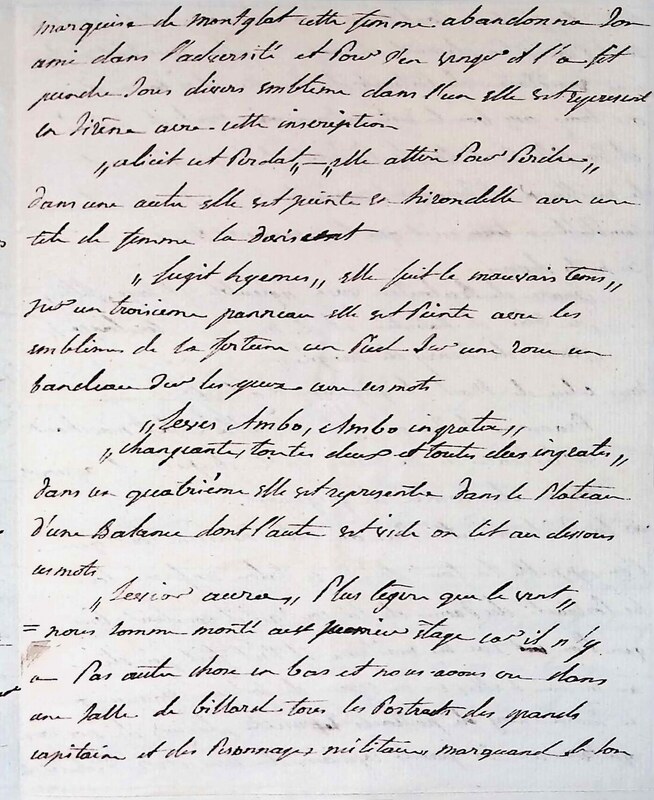 marquise de montglat cette femme abandonna son
ami dans l'adversité et Pour s'en venger il l'a fit
peindre sous divers emblème dans l'un elle est represent
en sirène avec cette inscription
„alicit ut Perdat„ — „elle attire Pour Perdre„
dans une autre elle est peinte en hirondelle avec une
tete de femme la
„fugit hyemes„ elle fuit le mauvais tems„
sur un troisieme panneau elle est Peinte avec les
emblêmes de la fortune un Pied sur une roue un
bandeau sur les yeux avec ces mots
„Leves Ambo, Ambo ingratæ„
„changeantes toutes deux et toutes deux ingrates„
dans un quatriéme elle est representée dans le Plateau
d'une Balance dont l'autre est vide on lit au dessous
ces mots
„Levior aura„ Plus légère que le vent„
= nous somme monté au premier étage car il n'y
a Pas autre chose en bas et nous avons vu dans
une salle de billard tous les Portraits des grands
capitaine et des Personnages militaires marquand de son